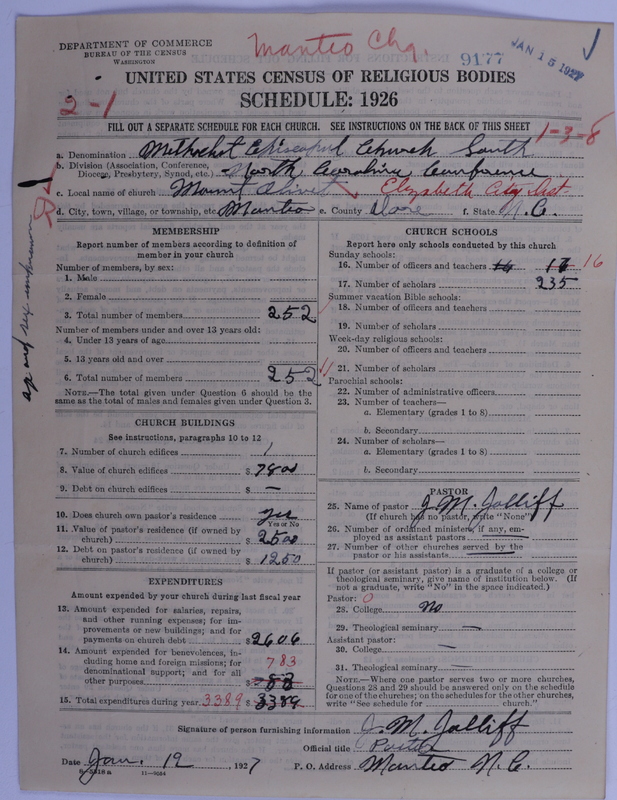 DEPARTMENT OF COMMERCE
BUREAU OF THE CENSUS
WASHINGTON
Manteo Chg.
9177
JAN 15 1927
UNITED STATES CENSUS OF RELIGIOUS BODIES
SCHEDULE: 1926
2-1
FILL OUT A SEPARATE SCHEDULE FOR EACH CHURCH. SEE INSTRUCTIONS ON THE BACK OF THIS SHEET
1-3-8
a. Denomination Methodist Episcopal Church South
b. Division (Association, Conference, Diocese, Presbytery, Synod, etc.) North Carolina Conference
c. Local name of church Mount Olivet Elizabeth City Dist
d. City, town, village, or township, etc. Manteo e. County Dare f. State N.C.
MEMBERSHIP
Report number of members according to definition of
member in your church
Number of members, by sex:
1. Male
2. Female
3. Total number of members 252
Number of members under and over 13 years old:
4. Under 13 years of age
5. 13 years old and over
6. Total number of members 252
NOTE.—The total given under Question 6 should be the
same as the total of males and females given under Question 3.
age and sex unknown
CHURCH BUILDINGS
See instructions, paragraphs 10 to 12
7. Number of church edifices 1
8. Value of church edifices $
9. Debt on church edifices $ —
10. Does church own pastor's residence yes
Yes or No
11. Value of pastor's residence (if owned by
church) $ 2500
12. Debt on pastor's residence (if owned by
church) $ 1250
EXPENDITURES
Amount expended by your church during last fiscal year
13. Amount expended for salaries, repairs,
and other running expenses; for im-
provements or new buildings; and for
payments on church debt $ 2606
14. Amount expended for benevolences, in-
cluding home and foreign missions; for
denominational support; and for all
other purposes $ 783
15. Total expenditures during year 3389 $ 3389
CHURCH SCHOOLS
Report here only schools conducted by this church
Sunday schools:
16. Number of officers and teachers 16 17 16
17. Number of scholars 235
Summer vacation Bible schools:
18. Number of officers and teachers
19. Number of scholars
Week-day religious schools:
20. Number of officers and teachers
21. Number of scholars
Parochial schools:
22. Number of administrative officers
23. Number of teachers—
a. Elementary (grades 1 to 8)
b. Secondary
24. Number of scholars—
a. Elementary (grades 1 to 8)
b. Secondary
PASTOR
25. Name of pastor J. M. Jolliff
(If church has no pastor, write "None")
26. Number of ordained ministers, if any, em-
ployed as assistant pastors
27. Number of other churches served by the
pastor or his assistants
If pastor (or assistant pastor) is a graduate of a college or
theological seminary, give name of institution below. (If
not a graduate, write "No" in the space indicated.)
Pastor: 0
28. College No
29. Theological seminary —
Assistant pastor:
30. College —
31. Theological seminary —
NOTE.—Where one pastor serves two or more churches,
Questions 28 and 29 should be answered only on the schedule
for one of the churches; on the schedules for the other churches,
write "See schedule for church."
Signature of person furnishing information J. M. Jolliff
Official title Pastor
Date Jan. 12, 1927 P. O. Address Manteo N.C.
8-5318a 11-9684